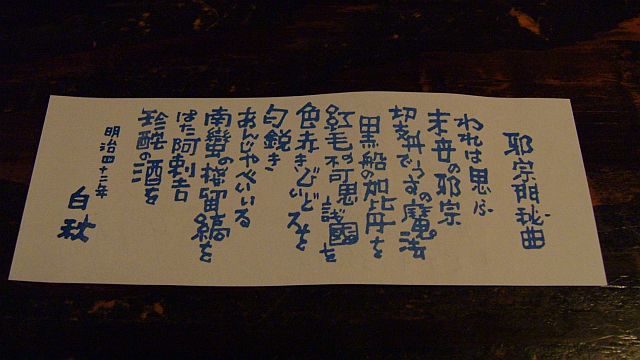 耶宗門秘曲
われは思ふ
末世の耶宗
切支丹でうすの魔法
黒船の加比丹を
紅毛の不可思議國を
色赤きびいどろを
匂鋭き
あんじやべいいる
南蠻の桟留縞を
はた阿剌吉
珍酡の酒を
明治四十二年
白秋